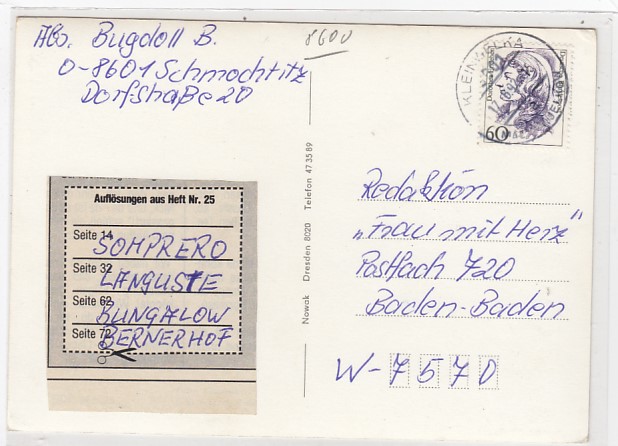 Abs. Bugdoll B.
O-8601 Schmochtitz
Dorfstraße 20
8600
KLEINWELKA
60
Auflösungen aus Heft Nr. 25
Seite 14
SOMPRERO
Seite 32
LANGUSTE
Seite 62
BUNGALOW
Seite 72
BERNERHOF
Nowak Dresden 8020 Telefon 473589
Redaktion
„Frau mit Herz"
Postfach 720
Baden-Baden
W-7570